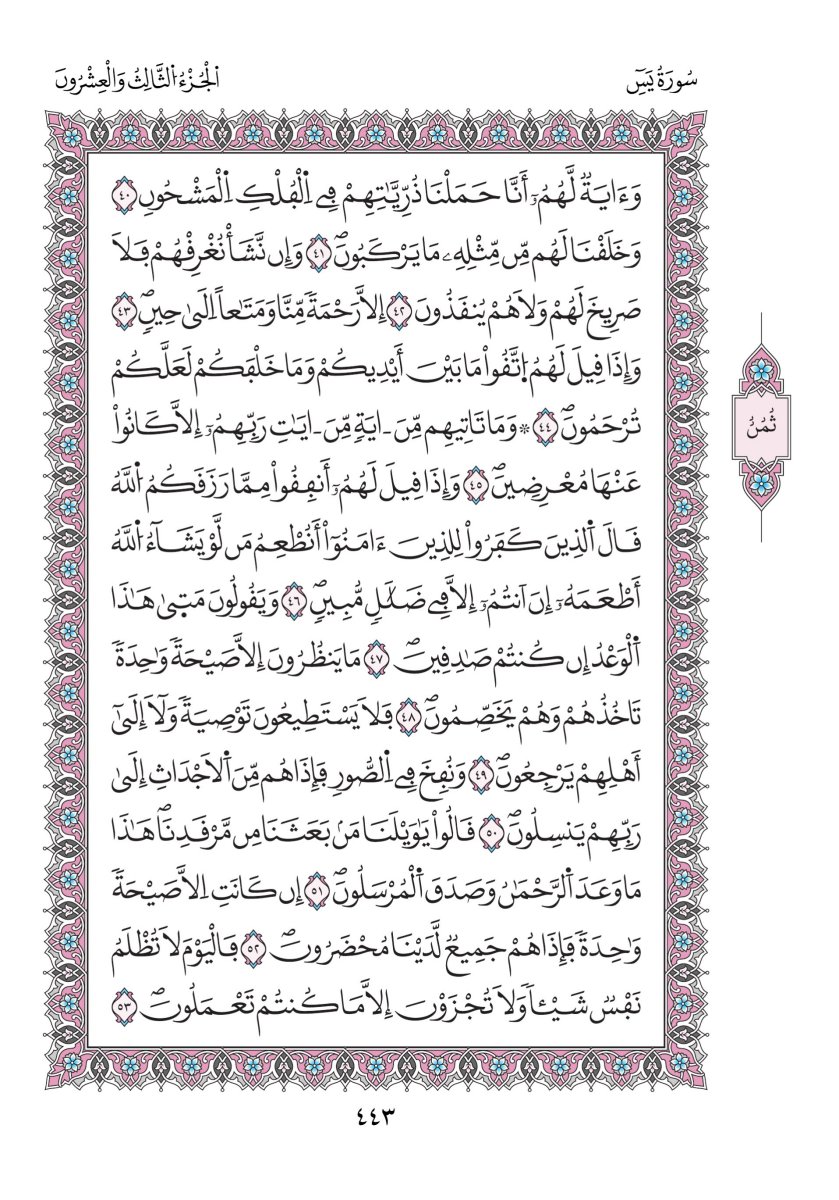 سُورَةُ يَسٓ
اَلْجُزْءُ اَلثَّالِثُ وَالْعِشْرُونَ
وَءَايَةٞ لَّهُمُۥٓ أَنَّا حَمَلْنَا ذُرِّيَّٰتِهِمْ فِے اِ۬لْفُلْكِ اِ۬لْمَشْحُونِ ٤٠
وَخَلَقْنَا لَهُم مِّن مِّثْلِهِۦ مَا يَرْكَبُونَۖ ٤١ وَإِن نَّشَأْ نُغْرِقْهُمْ فَلَا
صَرِيخَ لَهُمْ وَلَا هُمْ يُنقَذُونَ ٤٢ إِلَّا رَحْمَةٗ مِّنَّا وَمَتَٰعاً اِلَىٰ حِينٖۖ ٤٣
وَإِذَا قِيلَ لَهُمُ اُ۪تَّقُواْ مَا بَيْنَ أَيْدِيكُمْ وَمَا خَلْفَكُمْ لَعَلَّكُمْ
تُرْحَمُونَۖ ٤٤ ۞وَمَا تَاتِيهِم مِّنَ اٰيَةٖ مِّنَ اٰيَٰتِ رَبِّهِمُۥٓ إِلَّا كَانُواْ
عَنْهَا مُعْرِضِينَۖ ٤٥ وَإِذَا قِيلَ لَهُمُۥٓ أَنفِقُواْ مِمَّا رَزَقَكُمُ اُ۬للَّهُ
قَالَ اَ۬لذِينَ كَفَرُواْ لِلذِينَ ءَامَنُوٓاْ أَنُطْعِمُ مَن لَّوْ يَشَآءُ اُ۬للَّهُ
أَطْعَمَهُۥٓ إِنَ اَنتُمُۥٓ إِلَّا فِے ضَلَٰلٖ مُّبِينٖۖ ٤٦ وَيَقُولُونَ مَتَىٰ هَٰذَا
اَ۬لْوَعْدُ إِن كُنتُمْ صَٰدِقِينَۖ ٤٧ مَا يَنظُرُونَ إِلَّا صَيْحَةٗ وَٰحِدَةٗ
تَاخُذُهُمْ وَهُمْ يَخَصِّمُونَۖ ٤٨ فَلَا يَسْتَطِيعُونَ تَوْصِيَةٗ وَلَآ إِلَىٰٓ
أَهْلِهِمْ يَرْجِعُونَۖ ٤٩ وَنُفِخَ فِے اِ۬لصُّورِ فَإِذَا هُم مِّنَ اَ۬لَاجْدَاثِ إِلَىٰ
رَبِّهِمْ يَنسِلُونَۖ ٥٠ قَالُواْ يَٰوَيْلَنَا مَنۢ بَعَثَنَا مِن مَّرْقَدِنَاۖ هَٰذَا
مَا وَعَدَ اَ۬لرَّحْمَٰنُ وَصَدَقَ اَ۬لْمُرْسَلُونَۖ ٥١ إِن كَانَتِ اِلَّا صَيْحَةٗ
وَٰحِدَةٗ فَإِذَا هُمْ جَمِيعٞ لَّدَيْنَا مُحْضَرُونَۖ ٥٢ فَالْيَوْمَ لَا تُظْلَمُ
نَفْسٞ شَيْـٔاٗ وَلَا تُجْزَوْنَ إِلَّا مَا كُنتُمْ تَعْمَلُونَۖ ٥٣
ثُمُنُ
٤٤٣